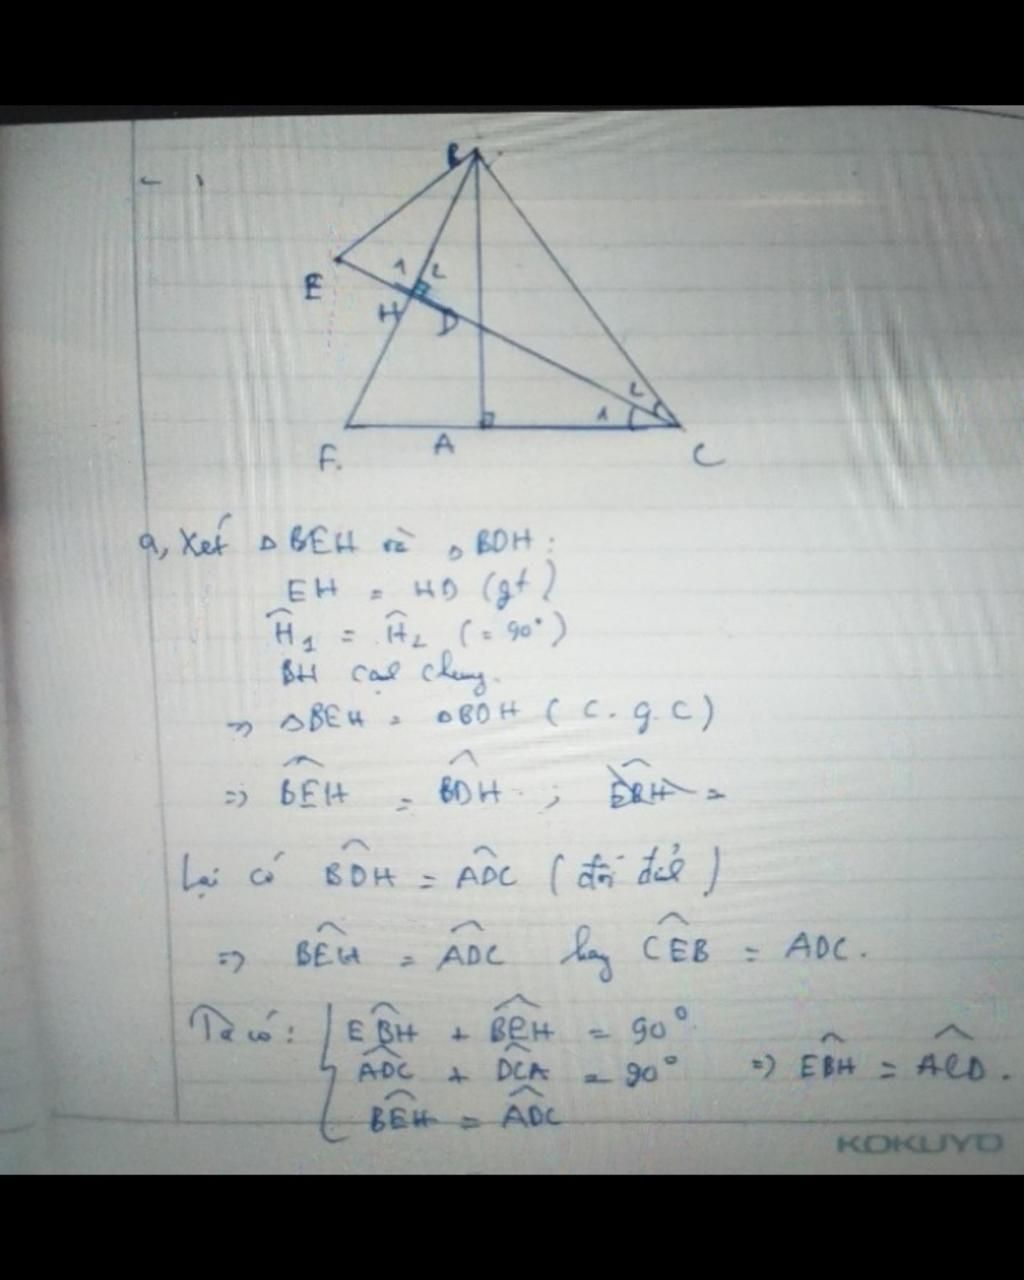 B
E
1 2
H
D
2
1
F.
A
C
a, Xét △BEH và △BDH:
EH = HD (gt)
Ĥ₁ = Ĥ₂ (= 90°)
BH cạnh chung.
=> △BEH = △BDH (c.g.c)
=> BEH = BDH ; EBH =
Lại có BDH = ADC (đối đỉnh)
=> BEH = ADC hay CEB = ADC.
Ta có: EBH + BEH = 90°
ADC + DCA = 90° => EBH = ACD.
BEH = ADC
KOKUYO